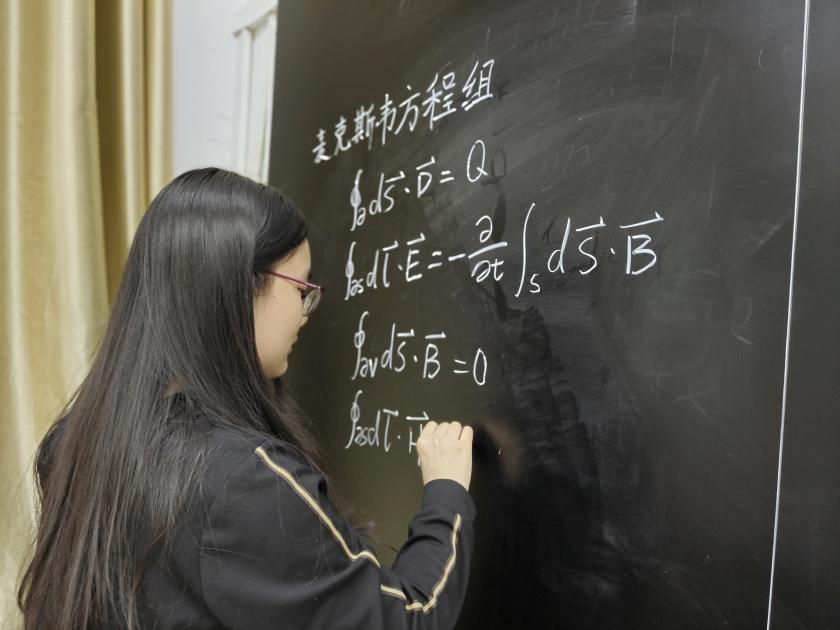 麦克斯韦方程组
∮∂dS⃗·D⃗=Q
∮∂sdl⃗·E⃗=-∂/∂t∫s dS⃗·B⃗
∮∂vdS⃗·B⃗=0
∮∂sdl⃗·H⃗